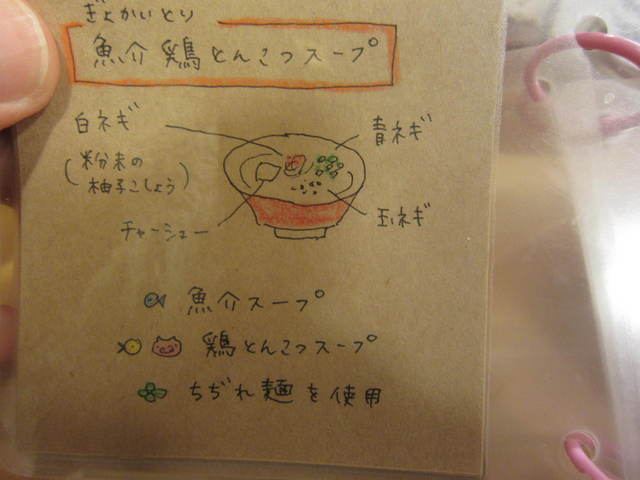 ぎょかいとり
魚介 鶏とんこつスープ
白ネギ
青ネギ
(粉末の
柚子こしょう)
チャーシュー
玉ネギ
魚介スープ
鶏とんこつスープ
ちぢれ麺を使用